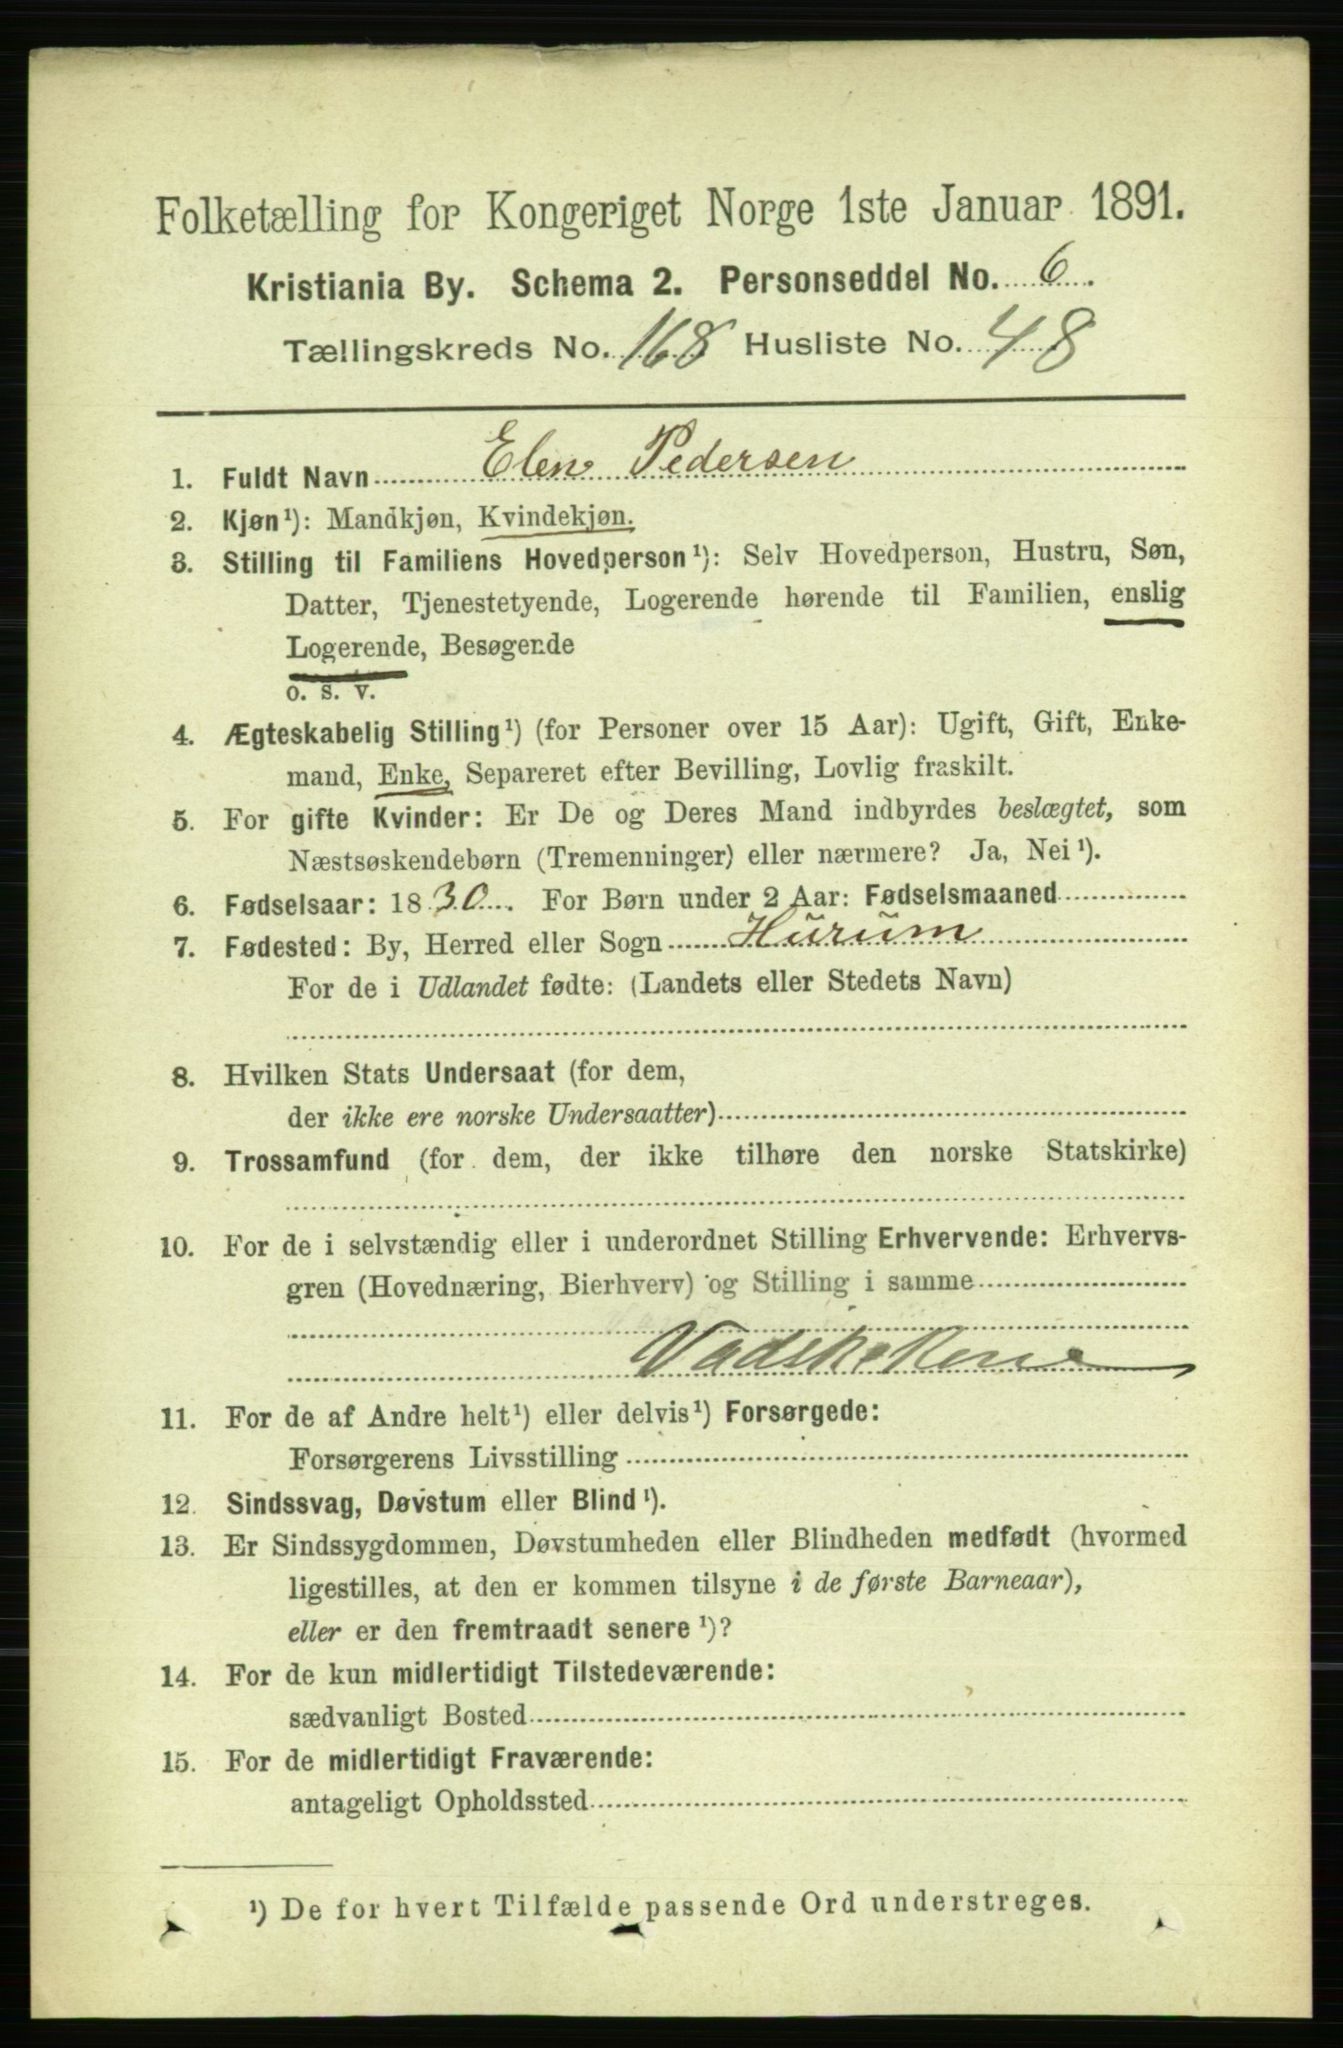 Folketælling for Kongeriget Norge 1ste Januar 1891.
Kristiania By. Schema 2. Personseddel No. 6.
Tællingskreds No. 168 Husliste No. 48
1. Fuldt Navn Elen Pedersen
2. Kjøn¹): Mandkjøn, Kvindekjøn.
3. Stilling til Familiens Hovedperson¹): Selv Hovedperson, Hustru, Søn,
Datter, Tjenestetyende, Logerende hørende til Familien, enslig
Logerende, Besøgende
o. s. v.
4. Ægteskabelig Stilling¹) (for Personer over 15 Aar): Ugift, Gift, Enke-
mand, Enke, Separeret efter Bevilling, Lovlig fraskilt.
5. For gifte Kvinder: Er De og Deres Mand indbyrdes beslægtet, som
Næstsøskendebørn (Tremenninger) eller nærmere? Ja, Nei¹).
6. Fødselsaar: 1830. For Børn under 2 Aar: Fødselsmaaned
7. Fødested: By, Herred eller Sogn Hurum
For de i Udlandet fødte: (Landets eller Stedets Navn)
8. Hvilken Stats Undersaat (for dem,
der ikke ere norske Undersaatter)
9. Trossamfund (for dem, der ikke tilhøre den norske Statskirke)
10. For de i selvstændig eller i underordnet Stilling Erhvervende: Erhvervs-
gren (Hovednæring, Bierhverv) og Stilling i samme
Vadskekone
11. For de af Andre helt¹) eller delvis¹) Forsørgede:
Forsørgerens Livsstilling
12. Sindssvag, Døvstum eller Blind¹).
13. Er Sindssygdommen, Døvstumheden eller Blindheden medfødt (hvormed
ligestilles, at den er kommen tilsyne i de første Barneaar),
eller er den fremtraadt senere¹)?
14. For de kun midlertidigt Tilstedeværende:
sædvanligt Bosted
15. For de midlertidigt Fraværende:
antageligt Opholdssted
¹) De for hvert Tilfælde passende Ord understreges.